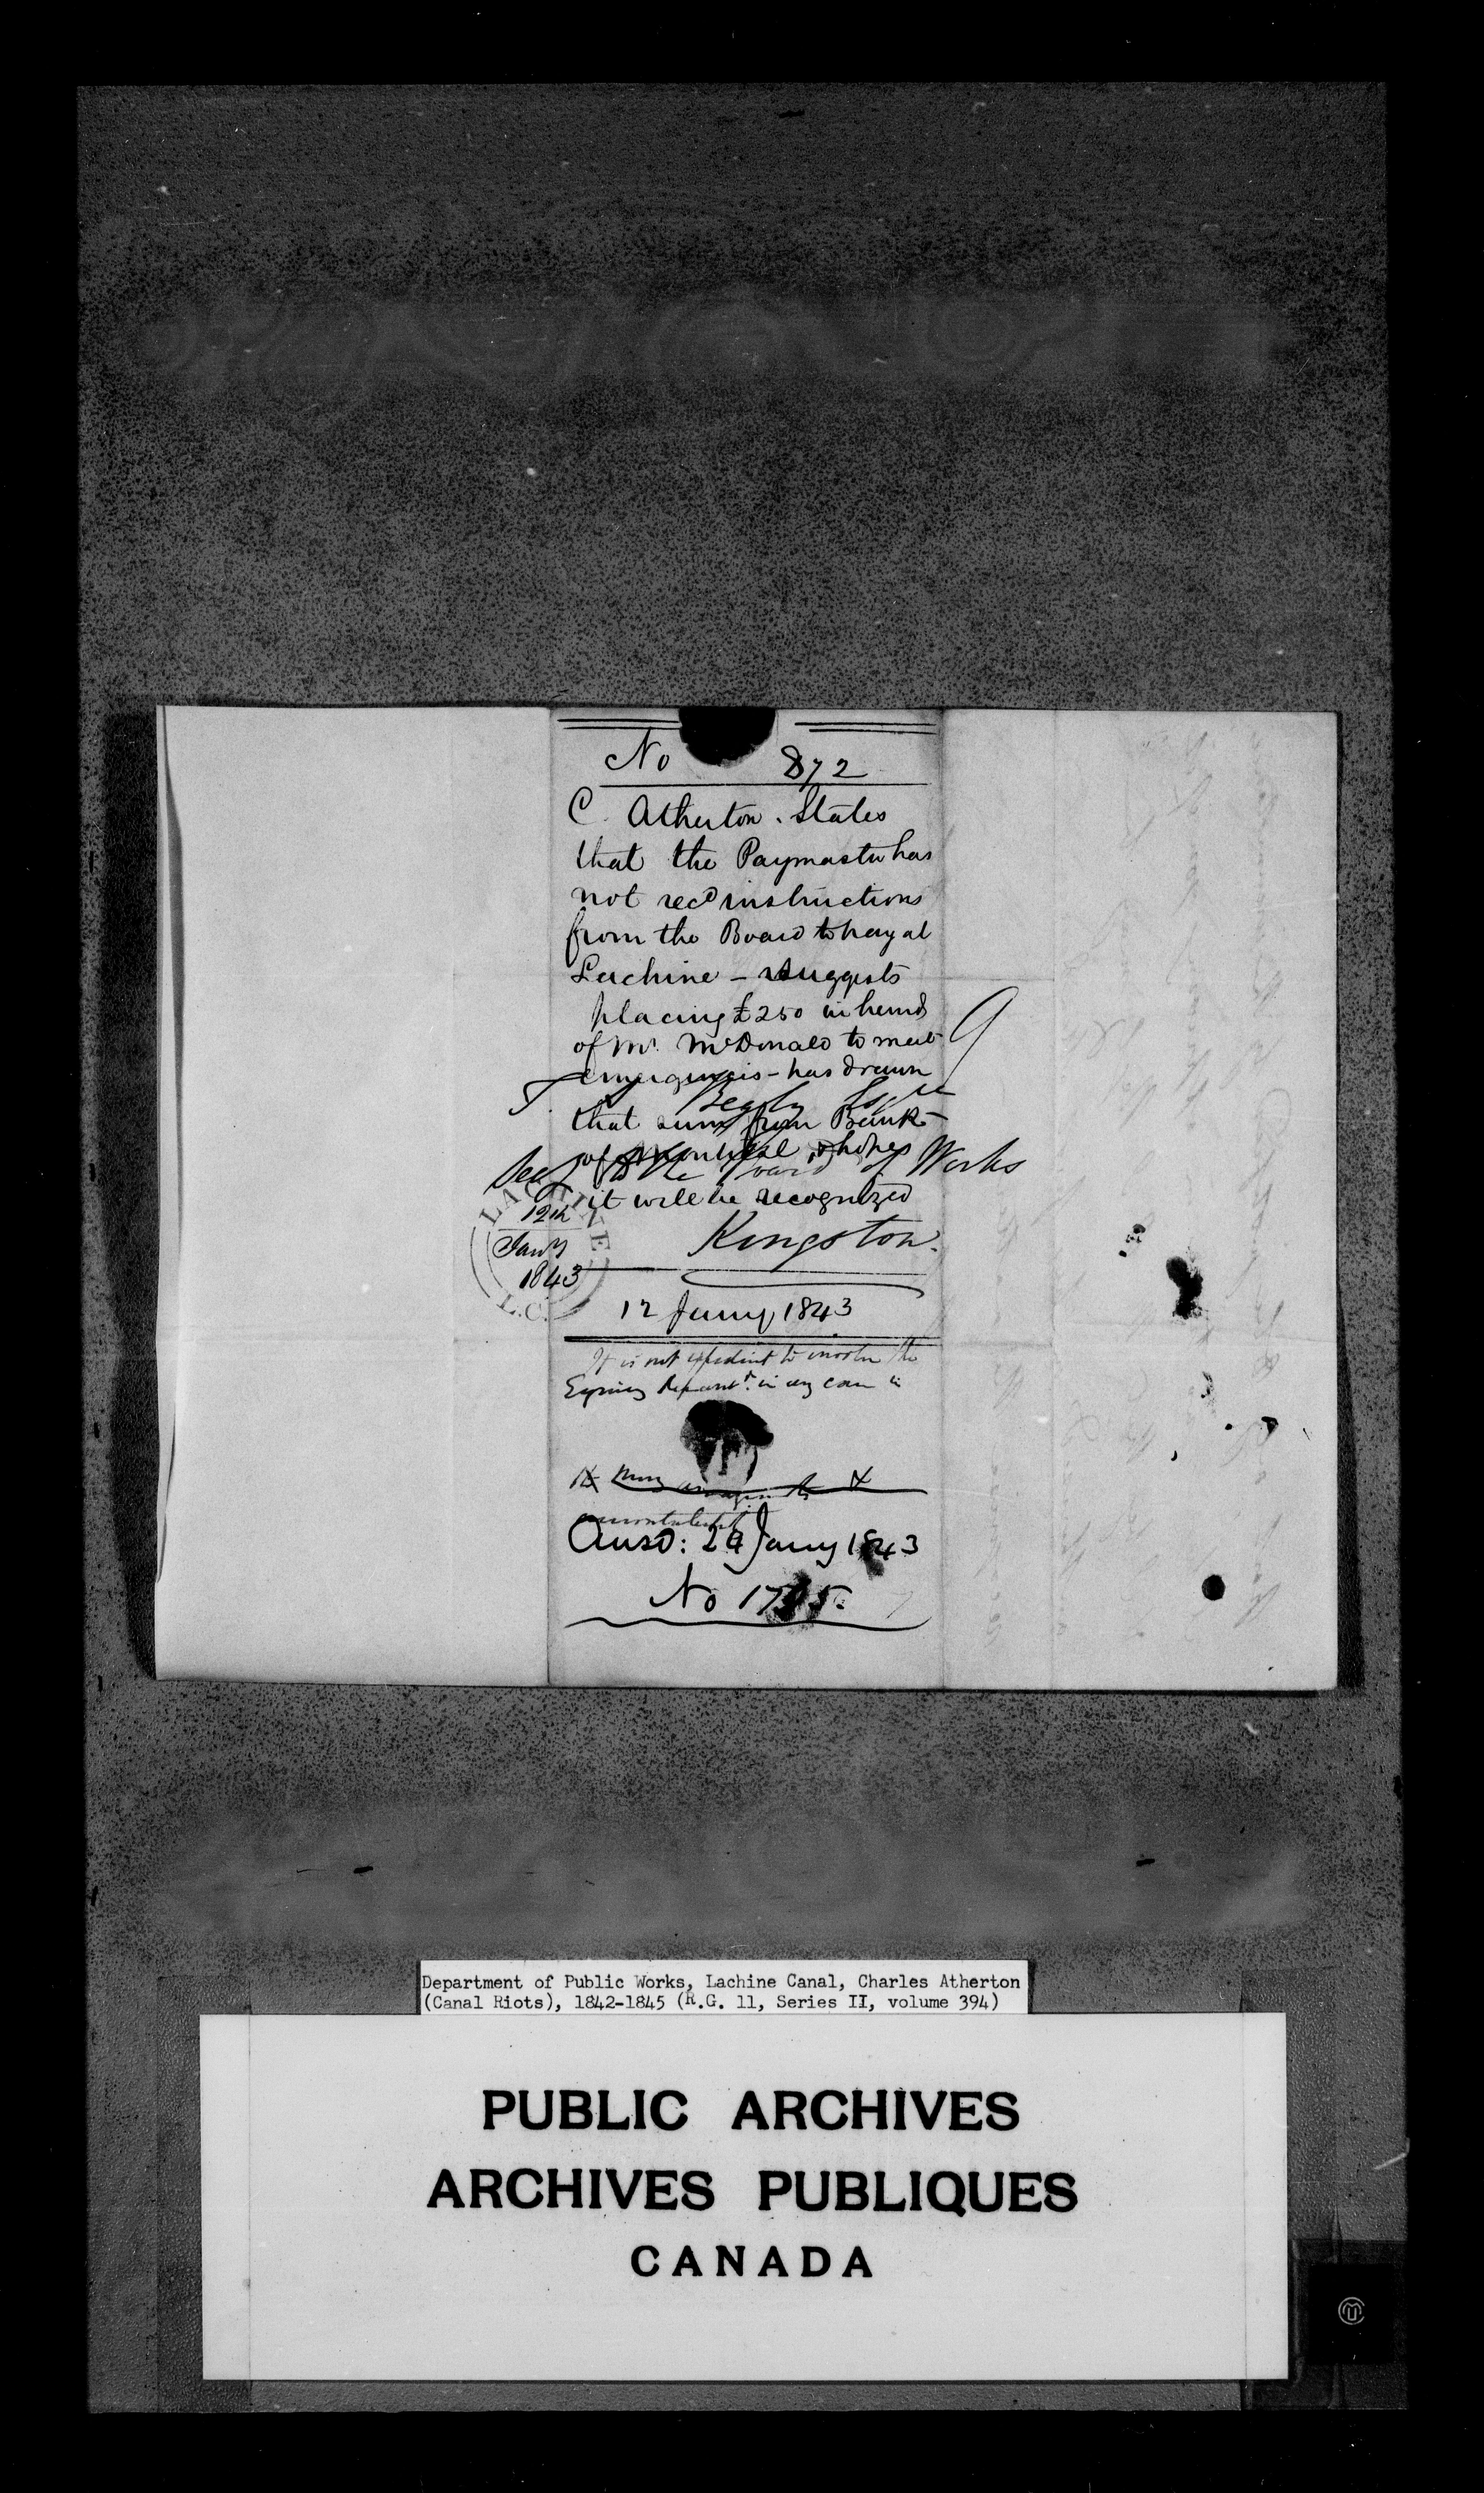 No 872
C. Atherton. States
that the Paymaster has
not recd instructions
from the Board to pay at
Lachine - Suggests
placing £250 in hands
of Mr. McDonald to meet
emergencies - has drawn
T. Begly Esqre
that sum from Bank
of Montreal, & hopes
Secy to the Board of Works
it will be recognized
LACHINE
12th
Jany
1843
L.C.
Kingston.
12 Jany 1843
It is not expedient to involve the
in any
Ansd: 24 Jany 1843
No
Department of Public Works, Lachine Canal, Charles Atherton
(Canal Riots), 1842-1845 (R.G. 11, Series II, volume 394)
PUBLIC ARCHIVES
ARCHIVES PUBLIQUES
CANADA